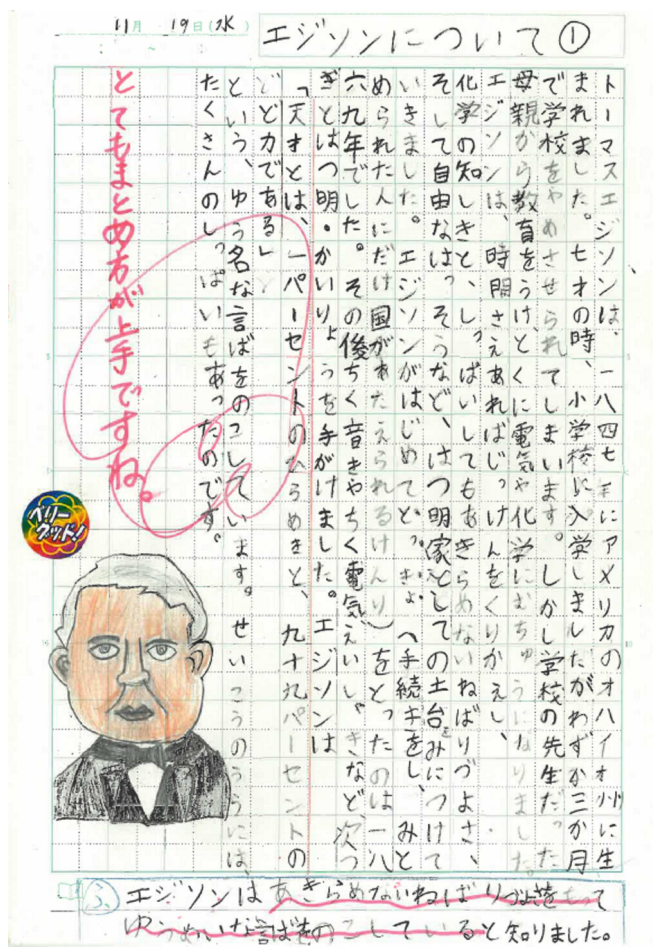 11月 19日(水)
エジソンについて①
トーマスエジソンは、一八四七年にアメリカのオハイオ州に生
まれました。七才の時、小学校に入学しましたがわずか三か月
で学校をやめさせられてしまいます。しかし学校の先生だった
母親から教育をうけ、とくに電気や化学にむちゅうになりました。
エジソンは、時間さえあればじっけんをくりかえし、
化学の知しきと、しっぱいしてもあきらめないねばりづよさ、
そして自由なはっそうなど、はつ明家としての土台をみにつけて
いきました。エジソンがはじめてとっきょ(手続きをし、みと
められた人にだけ国があたえられるけんり)をとったのは一八
六九年でした。その後ちく音きやちく電気えいしゃきなど、次つ
ぎとはつ明・かいりょうを手がけました。エジソンは
「天才とは、一パーセントのひらめきと、九十九パーセントの
どど力である」
という、ゆう名な言ばをのこしています。せいこうのうらには、
たくさんのしっぱいもあったのです。
とてもまとめ方が上手ですね。
ベリーグッド!
ふ エジソンはあきらめないねばりづよさをもって
ゆうめいな言ばをのこしていると知りました。